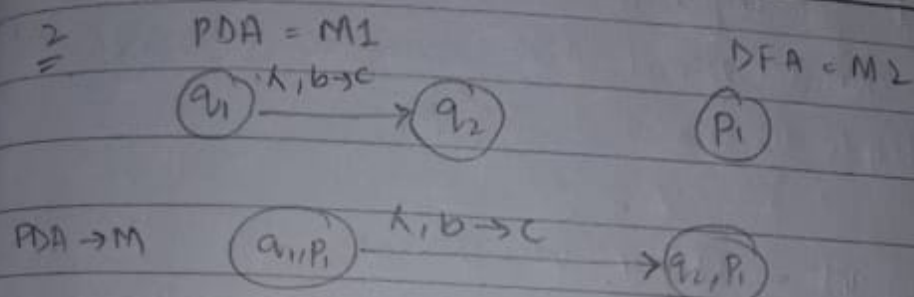 2 PDA = M1
DFA = M2
q1 λ, b→c q2 p1
PDA → M q1, p1 λ, b→c q2, p1